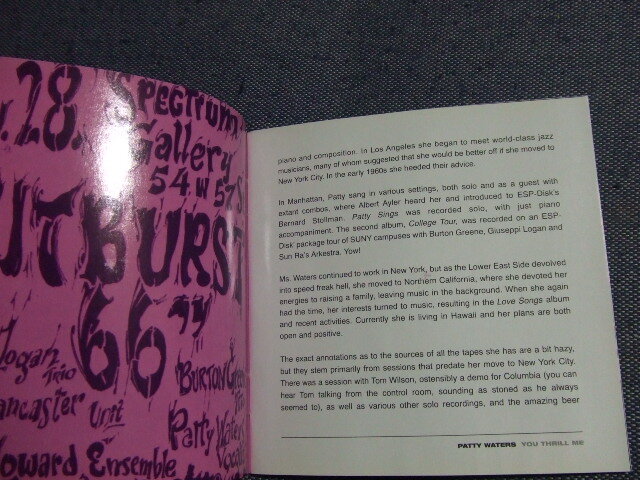 .28.
Spectrum
Gallery
54 W 57
UTBURST
66
Logan
Trio
Lancaster Unit
Burton
Patty Waters
Vocals
oward Ensemble
piano and composition. In Los Angeles she began to meet world-class jazz
musicians, many of whom suggested that she would be better off if she moved to
New York City. In the early 1960s she heeded their advice.
In Manhattan, Patty sang in various settings, both solo and as a guest with
extant combos, where Albert Ayler heard her and introduced to ESP-Disk's
Bernard Stollman. Patty Sings was recorded solo, with just piano
accompaniment. The second album, College Tour, was recorded on an ESP-
Disk' package tour of SUNY campuses with Burton Greene, Giuseppi Logan and
Sun Ra's Arkestra. Yow!
Ms. Waters continued to work in New York, but as the Lower East Side devolved
into speed freak hell, she moved to Northern California, where she devoted her
energies to raising a family, leaving music in the background. When she again
had the time, her interests turned to music, resulting in the Love Songs album
and recent activities. Currently she is living in Hawaii and her plans are both
open and positive.
The exact annotations as to the sources of all the tapes she has are a bit hazy,
but they stem primarily from sessions that predate her move to New York City.
There was a session with Tom Wilson, ostensibly a demo for Columbia (you can
hear Tom talking from the control room, sounding as stoned as he always
seemed to), as well as various other solo recordings, and the amazing beer
PATTY WATERS YOU THRILL ME